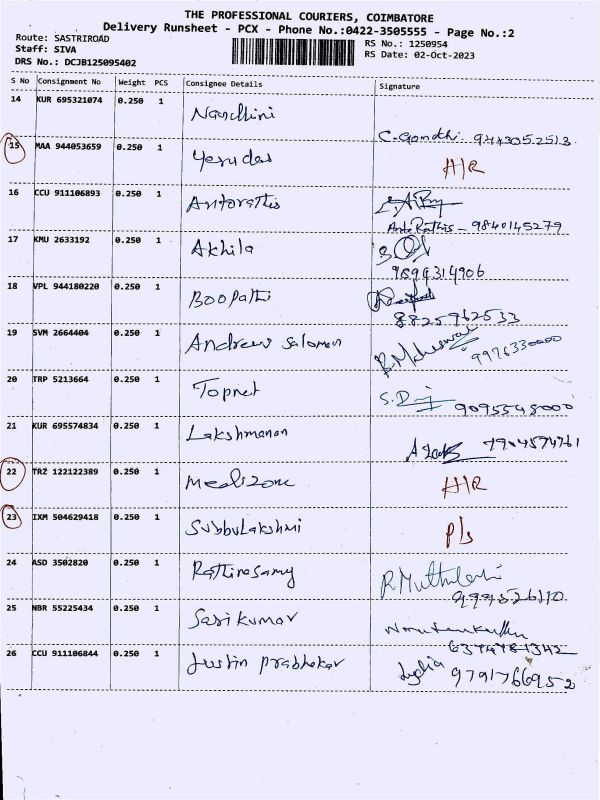 THE PROFESSIONAL COURIERS, COIMBATORE
Delivery Runsheet - PCX - Phone No.:0422-3505555 - Page No.:2
Route: SASTRIROAD
Staff: SIVA
DRS No.: DCJB125095402
RS No.: 1250954
RS Date: 02-Oct-2023
S No Consignment No Weight PCS Consignee Details Signature
14 KUR 695321074 0.250 1 Nandhini C. Gandhi. 9443052513
15 MAA 944053659 0.250 1 Yesudas H/R
16 CCU 911106893 0.250 1 Antorathis
Anto Rathis - 9840145279
17 KMU 2633192 0.250 1 Akhila
9894314906
18 VPL 944180220 0.250 1 Boopathi
8825962533
19 SVM 2664404 0.250 1 Andrews Salomon B. Maheswari 9976330000
20 TRP 5213664 0.250 1 Topnet 9095548000
21 KUR 695574834 0.250 1 Lakshmanan 7904574761
22 TRZ 122122389 0.250 1 Medizone H/R
23 IXM 504629418 0.250 1 Subbulakshmi P/s
24 ASD 3502820 0.250 1 Rathinasamy
999526110
25 NBR 55225434 0.250 1 Sasikumar
6374981342
26 CCU 911106844 0.250 1 Justin Prabhakar Lydia 9791766952